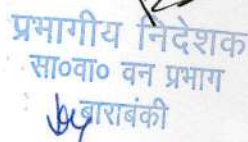 प्रभागीय निदेशक
सा०वा० वन प्रभाग
बाराबंकी